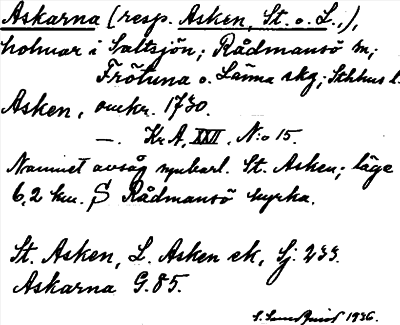 Askarna (resp. Asken, St. o. L.,),
holmar i Saltsjön; Rådmansö sn,
Frötuna o. Länna skg, Sthlms l.
Asken, omkr. 1730.
—. Kr A, XXII, N:o 15.
Namnet avsåg uppenbarl. St. Asken; läge
6,2 km. S Rådmansö kyrka.
St. Asken, L. Asken ek, Sj. 233.
Askarna G. 85.
1936.